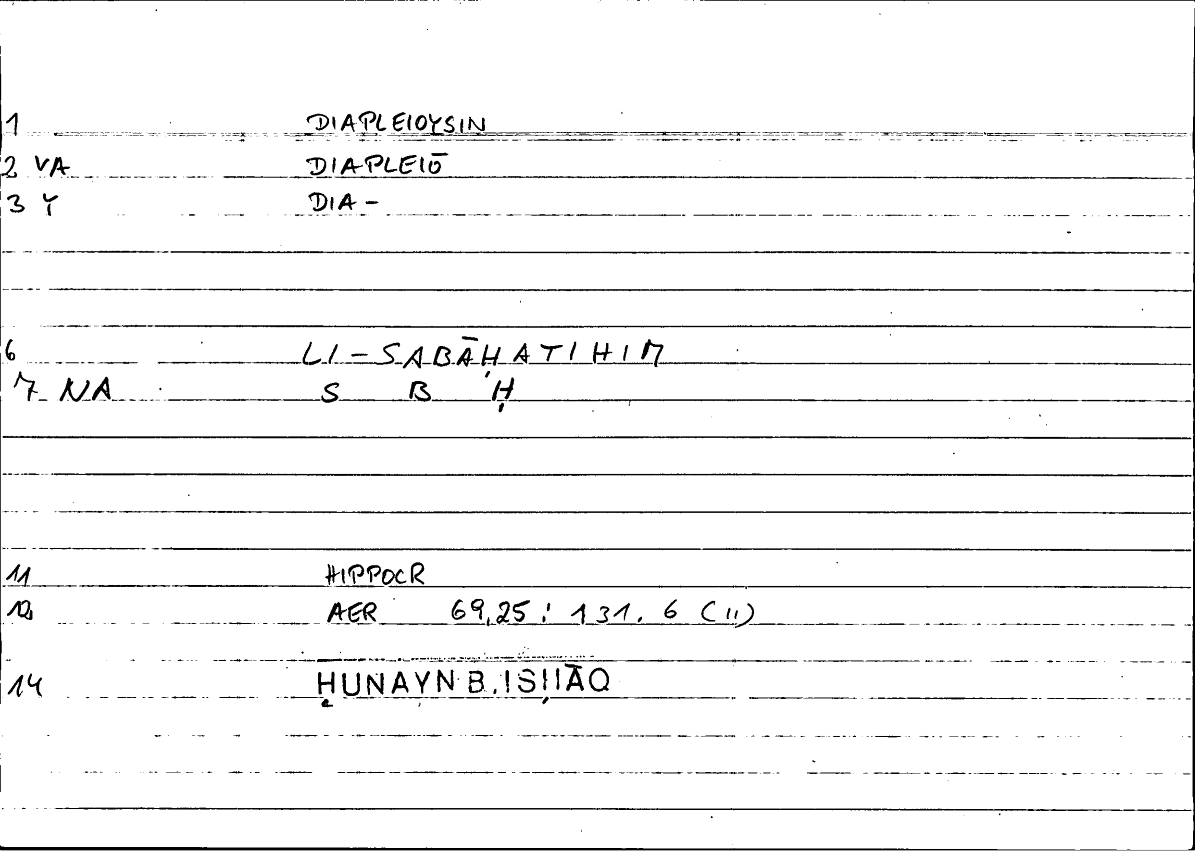 1 DIAPLEIOYSIN
2 VA DIAPLEIŌ
3 Y DIA-
6 LI-SABĀḤATIHIM
7 NA S B Ḥ
11 HIPPOCR
12 AER 69,25: 131. 6 (11)
14 ḤUNAYN B. ISḤĀQ